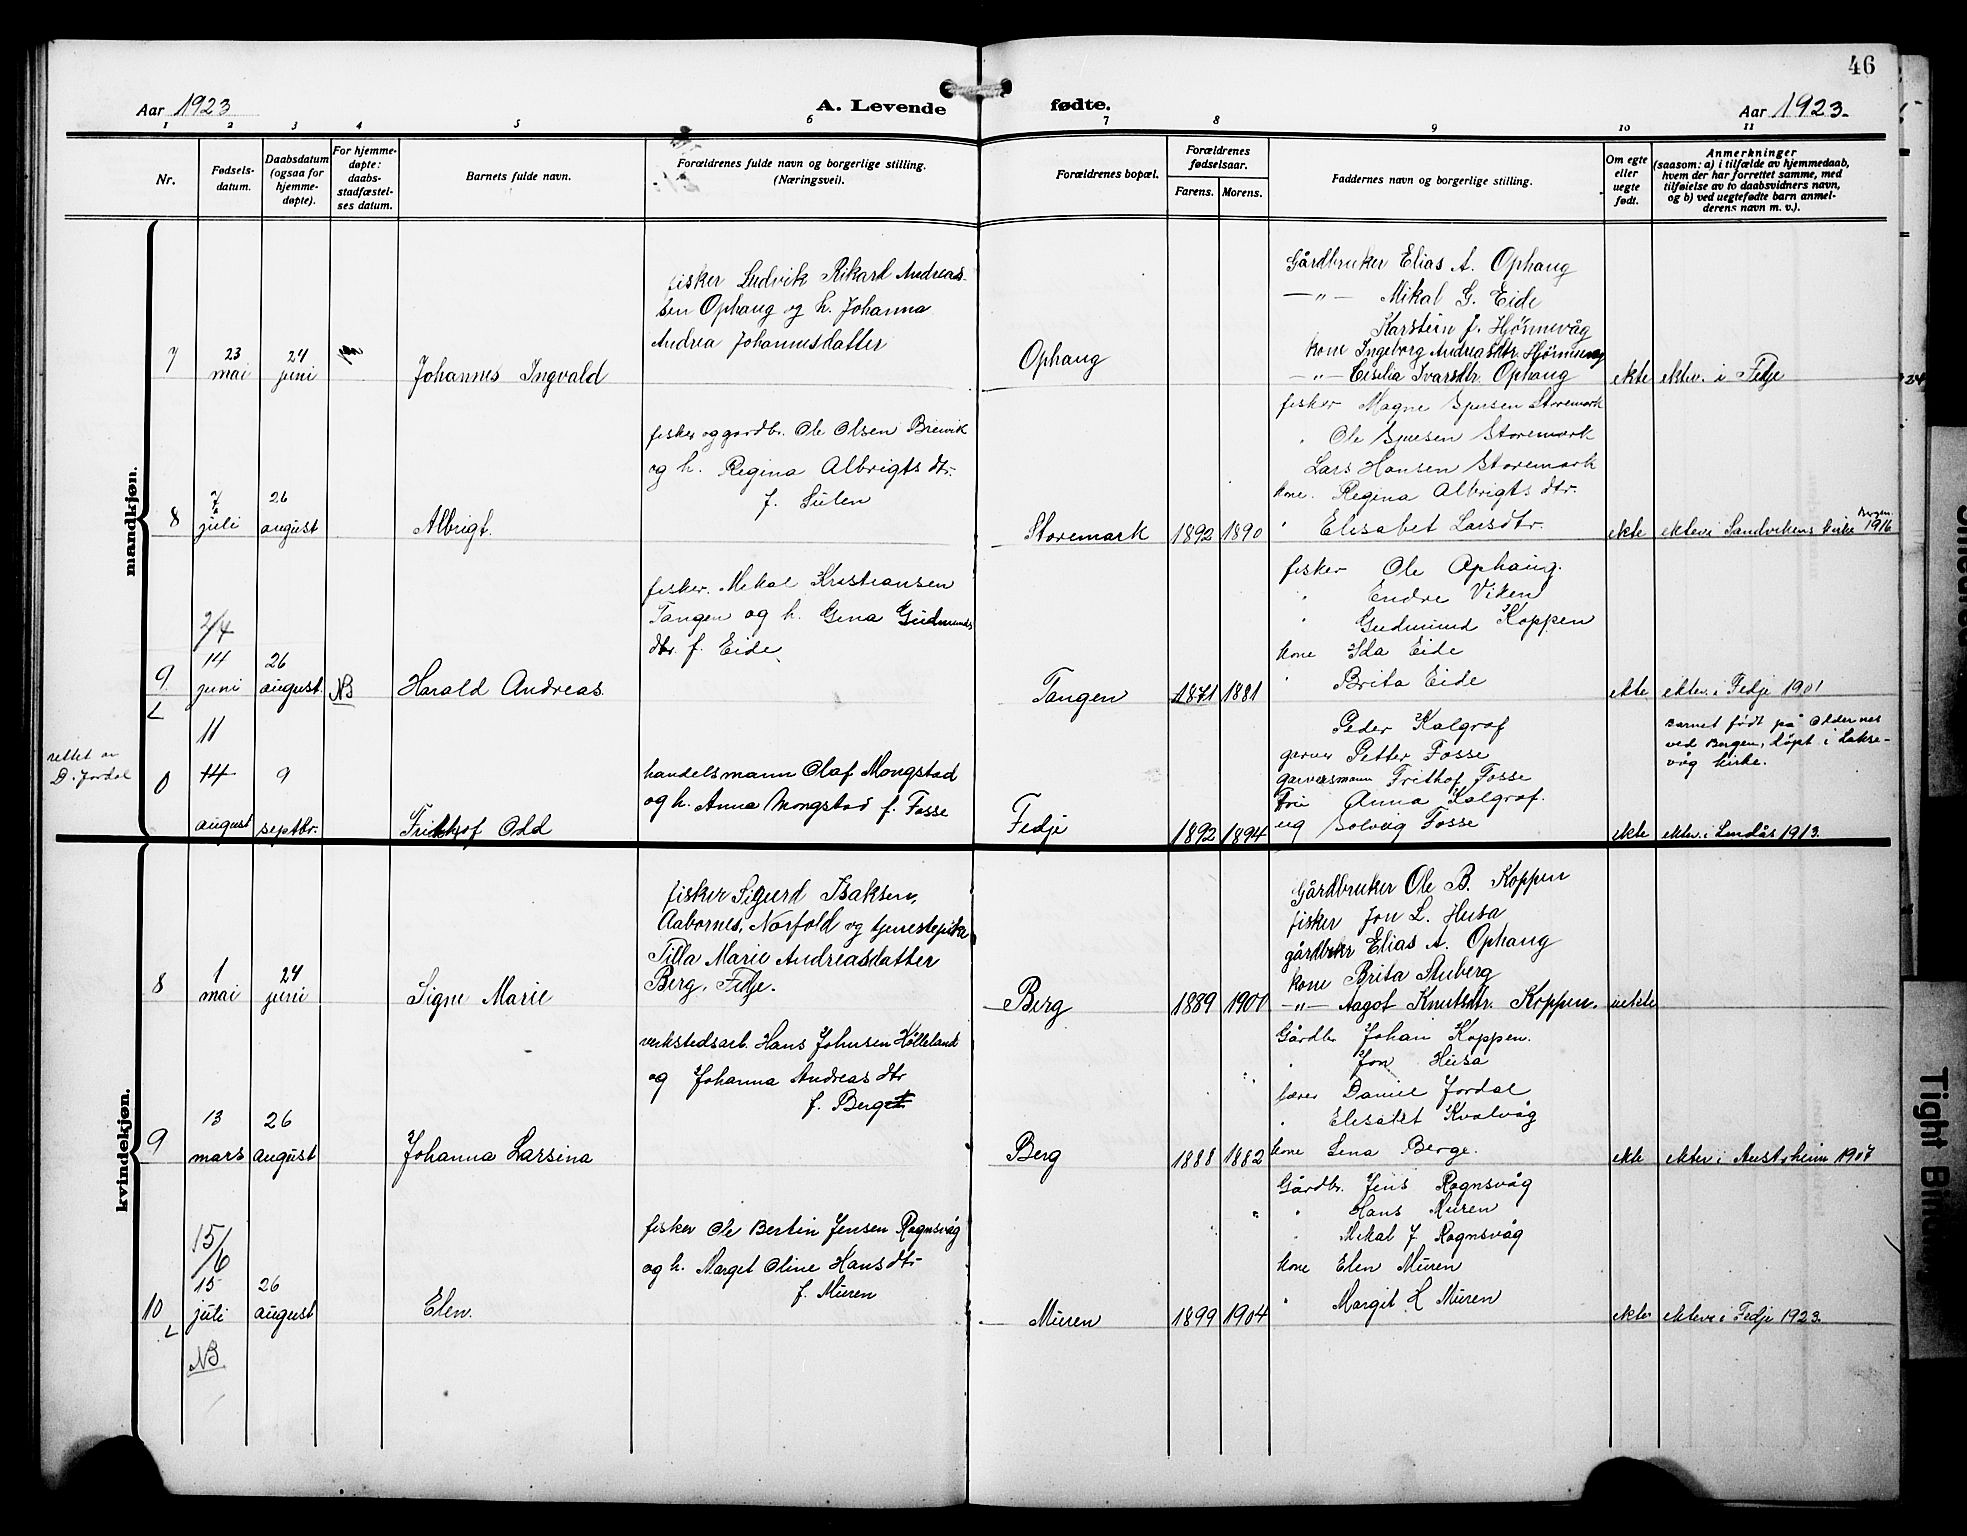 46
Aar 1923
A. Levende fødte.
Aar 1923.
1 2 3 4 5 6 7 8 9 10 11
Nr.
Fødsels-
datum.
Daabsdatum
(ogsaa for
hjemme-
døpte).
For hjemme-
døpte:
daabs-
stadfæstel-
ses datum.
Barnets fulde navn.
Forældrenes fulde navn og borgerlige stilling.
(Næringsveil).
Forældrenes bopæl.
Forældrenes
fødselsaar.
Farens. Morens.
Faddernes navn og borgerlige stilling.
Om egte
eller
uegte
født.
Anmerkninger
(saasom: a) i tilfælde av hjemmedaab,
hvem der har forrettet samme, med
tilføielse av to daabsvidners navn,
og b) ved uegtefødte barn anmel-
derens navn m. v.).
mandkjøn.
7
23
mai
24
juni
Johannes Ingvald
fisker Ludvik Rikard Andreas-
sen Ophaug og h. Johanna
Andrea Johannesdatter
Ophaug
Gårdbruker Elias A. Ophaug
—"— Mikal G. Eide
Karstein J. Hjønnevåg
kone Ingeborg Andreasdtr. Hjønnevåg
—"— Cisilia Ivarsdtr. Ophaug
ekte
ektev. i Fedje
8
7
juli
26
august
Albrigt.
fisker og gardbr. Ole Olsen Breivik
og h. Regina Albrigtsdtr.
f. Sulen
Storemark
1892
1890
fisker Magne Storemark
" Ole Storemark
Lars Hansen Storemark
kone. Regina Albrigtsdtr.
" Elisabet Larsdtr.
ekte
ektev i Sandvikens kirke Bergen 1916
9
2/4
14
juni
26
august.
NB
Harald Andreas.
fisker. Mikal Kristiansen
Tangen og h. Gina Gudmunds
dtr. f. Eide.
Tangen
1871
1881
fisker Ole Ophaug.
" Endre Viken
" Gudmund Koppen
kone Ida Eide
" Brita Eide
ekte
ektev. i Fedje 1901
rettet av
D. Jordal
0
11
14
august
9
septbr.
Fridthjof Odd
handelsmann Olaf Mongstad
og h. Anna Mongstad f. Fosse
Fedje
1892
1894
Peder Kalgraf
garver Petter Fosse
garversmann Frithof Fosse
Fru Anna Kalgraf.
ug Solveig Fosse
ekte
Barnet født på Oldernes
ved Bergen, døpt i Lakse-
våg kirke.
ektev. i Lindås 1913.
kvindekjøn.
8
1
mai
24
juni
Signe Marie
fisker Sigurd Isaksen,
Aabornes, Norfold og tjenestepike
Tilla Marie Andreasdatter
Berg, Fedje.
Berg
1889
1900
Gårdbruker Ole B. Koppen
fisker Jon L. Husa
gårdbrkr Elias A. Ophaug
kone Brita Stuberg
—"— Aagot Knutsdtr. Koppen.
uekte
9
13
mars
26
august
Johanna Larsina
verkstedsarb. Hans Johnsen Hølleland
og Johanna Andreasdtr
f. Berget
Berg
1888
1882
Gårdbr Johan Koppen.
" Jon Husa
lærer Daniel Jordal
" Elisabet Kvalvåg
kone Lina Berge.
ekte
ektev i Austrheim 1907
10
15/6
15
juli
26
august
NB
Elen.
fisker Ole Bertin Jensen Rognsvåg
og h. Marget Oline Hansdtr
f. Muren
Muren
1899
1904
Gårdbr. Jens Rognsvåg
" Hans Muren
" Mikal J Rognsvåg
kone Elen Muren
" Margit L Muren
ekte
ektev i Fedje 1923.
Tight Bin